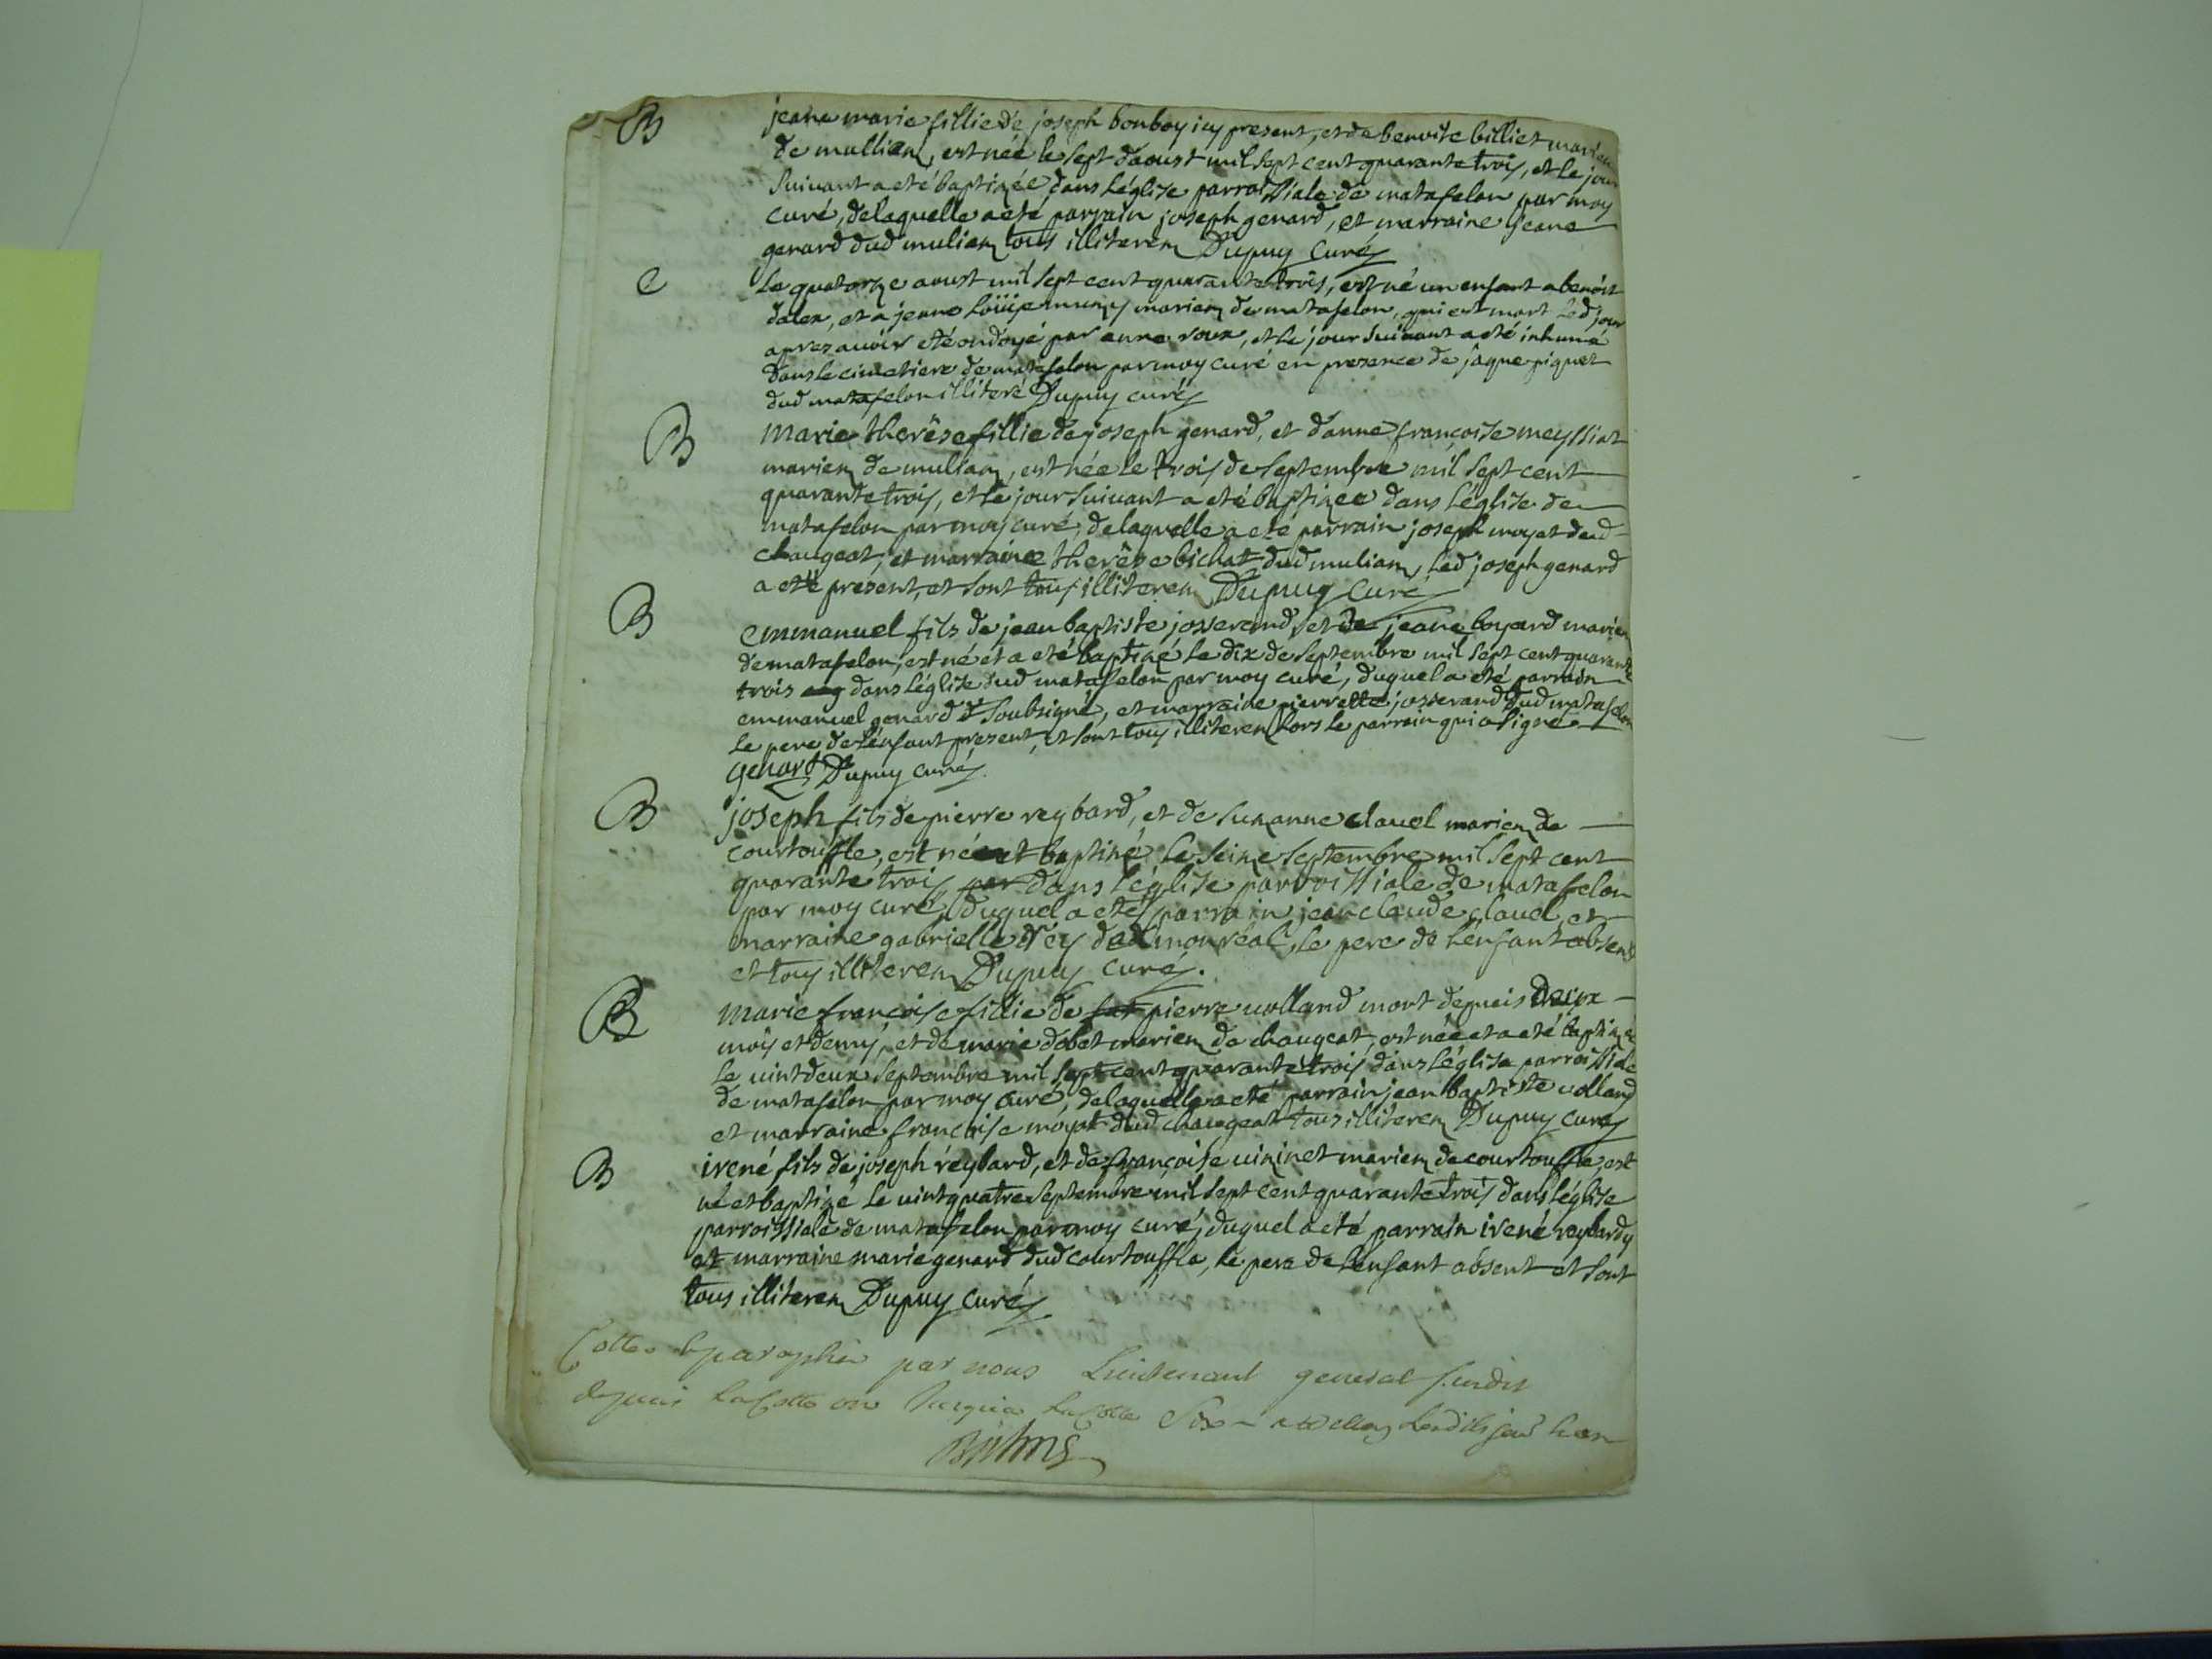 B jeane marie fillie de joseph bonboy icy present, et de benoite billiet mariez
de mullian, est née le sept daoust mil sept cent quarante trois, et le jour
suivant a eté baptizée dans léglise parroissiale de matafelon par moy
curé, delaquelle a eté parrain joseph genard, et marraine jeane
genard dud mulian tous illiterez Dupuy curé
C Le quatorze aoust mil sept cent quarante trois, est né un enfant a benoit
dalex, et a jeane Loüise muny mariez de matafelon, qui est mort led jour
aprez auoir eté ondoyé par anne roux, et le jour suivant a eté inhumé
dans le cimetiere de matafelon par moy curé en presence de jaque piquet
dud matafelon illiteré Dupuy curé
B Marie therëse fillie de joseph genard, et danne françoise meyssiat
mariez de mulian, est née le trois de septembre mil sept cent
quarante trois, et le jour suivant a eté baptizée dans léglise de
matafelon par moy curé, delaquelle a eté parrain joseph moyet dud
chaugeat, et marraine therëse bichat dud mulian, led joseph genard
a eté present, et sont tous illiterez Dupuy curé
B emmanuel fils de jean baptiste josserand, et de jeane boyard mariez
de matafelon, est né et a eté baptizé le dix de septembre mil sept cent quarante
trois dans léglise dud matafelon par moy curé, duquel a eté parrain
emmanuel genard soubsigné, et marraine pierrette josserand dud matafelon
le pere de lénfant present, et sont tous illiterez hors le parrain qui a signé
genard Dupuy curé
B joseph fils de pierre reybard, et de suzanne clauel mariez de
courtouffle, est né et baptizé le seize septembre mil sept cent
quarante trois par dans léglise parroissiale de matafelon
par moy curé, duquel a eté parrain jean claude clauel, et
marraine gabrielle rey de monréal, le pere de lénfant absent
et tous illiterez Dupuy curé.
B marie françoise fillie de pierre uolland mort depuis deux
mois et demy, et de marie dobet mariez de chaugeat, est née et a eté baptizée
le uint deux septembre mil sept cent quarante trois dans léglise parroissiale
de matafelon par moy curé, delaquelle a eté parrain jean baptiste uolland
et marraine françoise moyet dud chaugeat tous illiterez Dupuy curé
B irené fils de joseph reybard, et de françoise uininet mariez de courtouffle, est
né et baptizé le uint quatre septembre mil sept cent quarante trois dans léglise
parroissiale de matafelon par moy curé, duquel a eté parrain irené reybard
et marraine marie genard dud courtouffle, le pere de lenfant absent et sont
tous illiterez Dupuy curé
Cotté et paraphé par nous Lieutenant general susdit
depuis la Cotte une jusques la Cotte Six